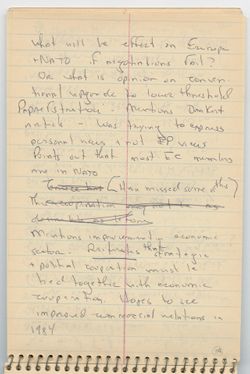 what will be effect on Europe
+ NATO if negotiations fail?
Or what is opinion on conven-
tional upgrade to lower threshold
Papaefstratiou - Mentions Dankert
article - was trying to express
personal news + not EP views
Points out that most EC members
are in NATO
(Have missed some of this)
The cooperation may not be as
Mentions improvement economic
sector. that strategic
+ political cooperation must be
tied together with economic
cooperation. Hopes to see
improved commercial relations in
1984